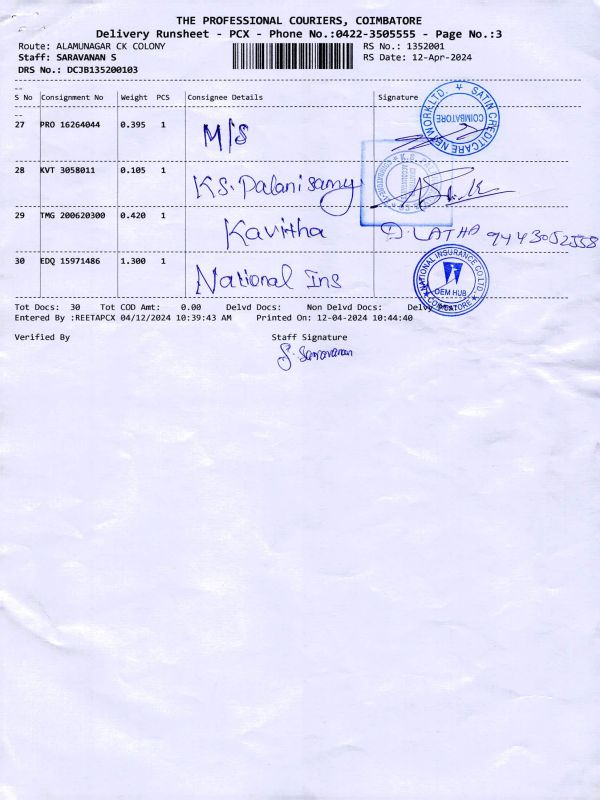 THE PROFESSIONAL COURIERS, COIMBATORE
Delivery Runsheet - PCX - Phone No.:0422-3505555 - Page No.:3
Route: ALAMUNAGAR CK COLONY
RS No.: 1352001
Staff: SARAVANAN S
RS Date: 12-Apr-2024
DRS No.: DCJB135200103
S No Consignment No Weight PCS Consignee Details Signature
27 PRO 16264044 0.395 1 M/S
SATIN CREDITCARE NETWORK LTD.
COIMBATORE
28 KVT 3058011 0.105 1 KS. Palanisamy
29 TMG 200620300 0.420 1 Kavitha D. LATHA 9443052558
30 EDQ 15971486 1.300 1 National Ins
NATIONAL INSURANCE CO LTD
OEM HUB
COIMBATORE
Tot Docs: 30 Tot COD Amt: 0.00 Delvd Docs: Non Delvd Docs: Delv
Entered By :REETAPCX 04/12/2024 10:39:43 AM Printed On: 12-04-2024 10:44:40
Verified By Staff Signature
S. Saravanan